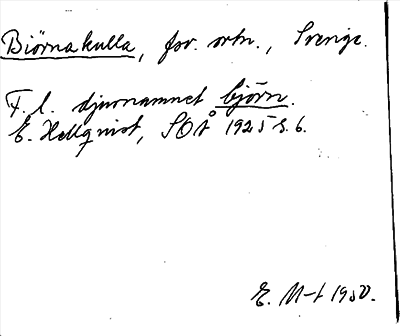 Biörnakulla, for. ortn., Sverige.
F. l. djurnamnet björn.
E. Hellquist, SOÅ 1925 s. 6.
E. M-t 1950.